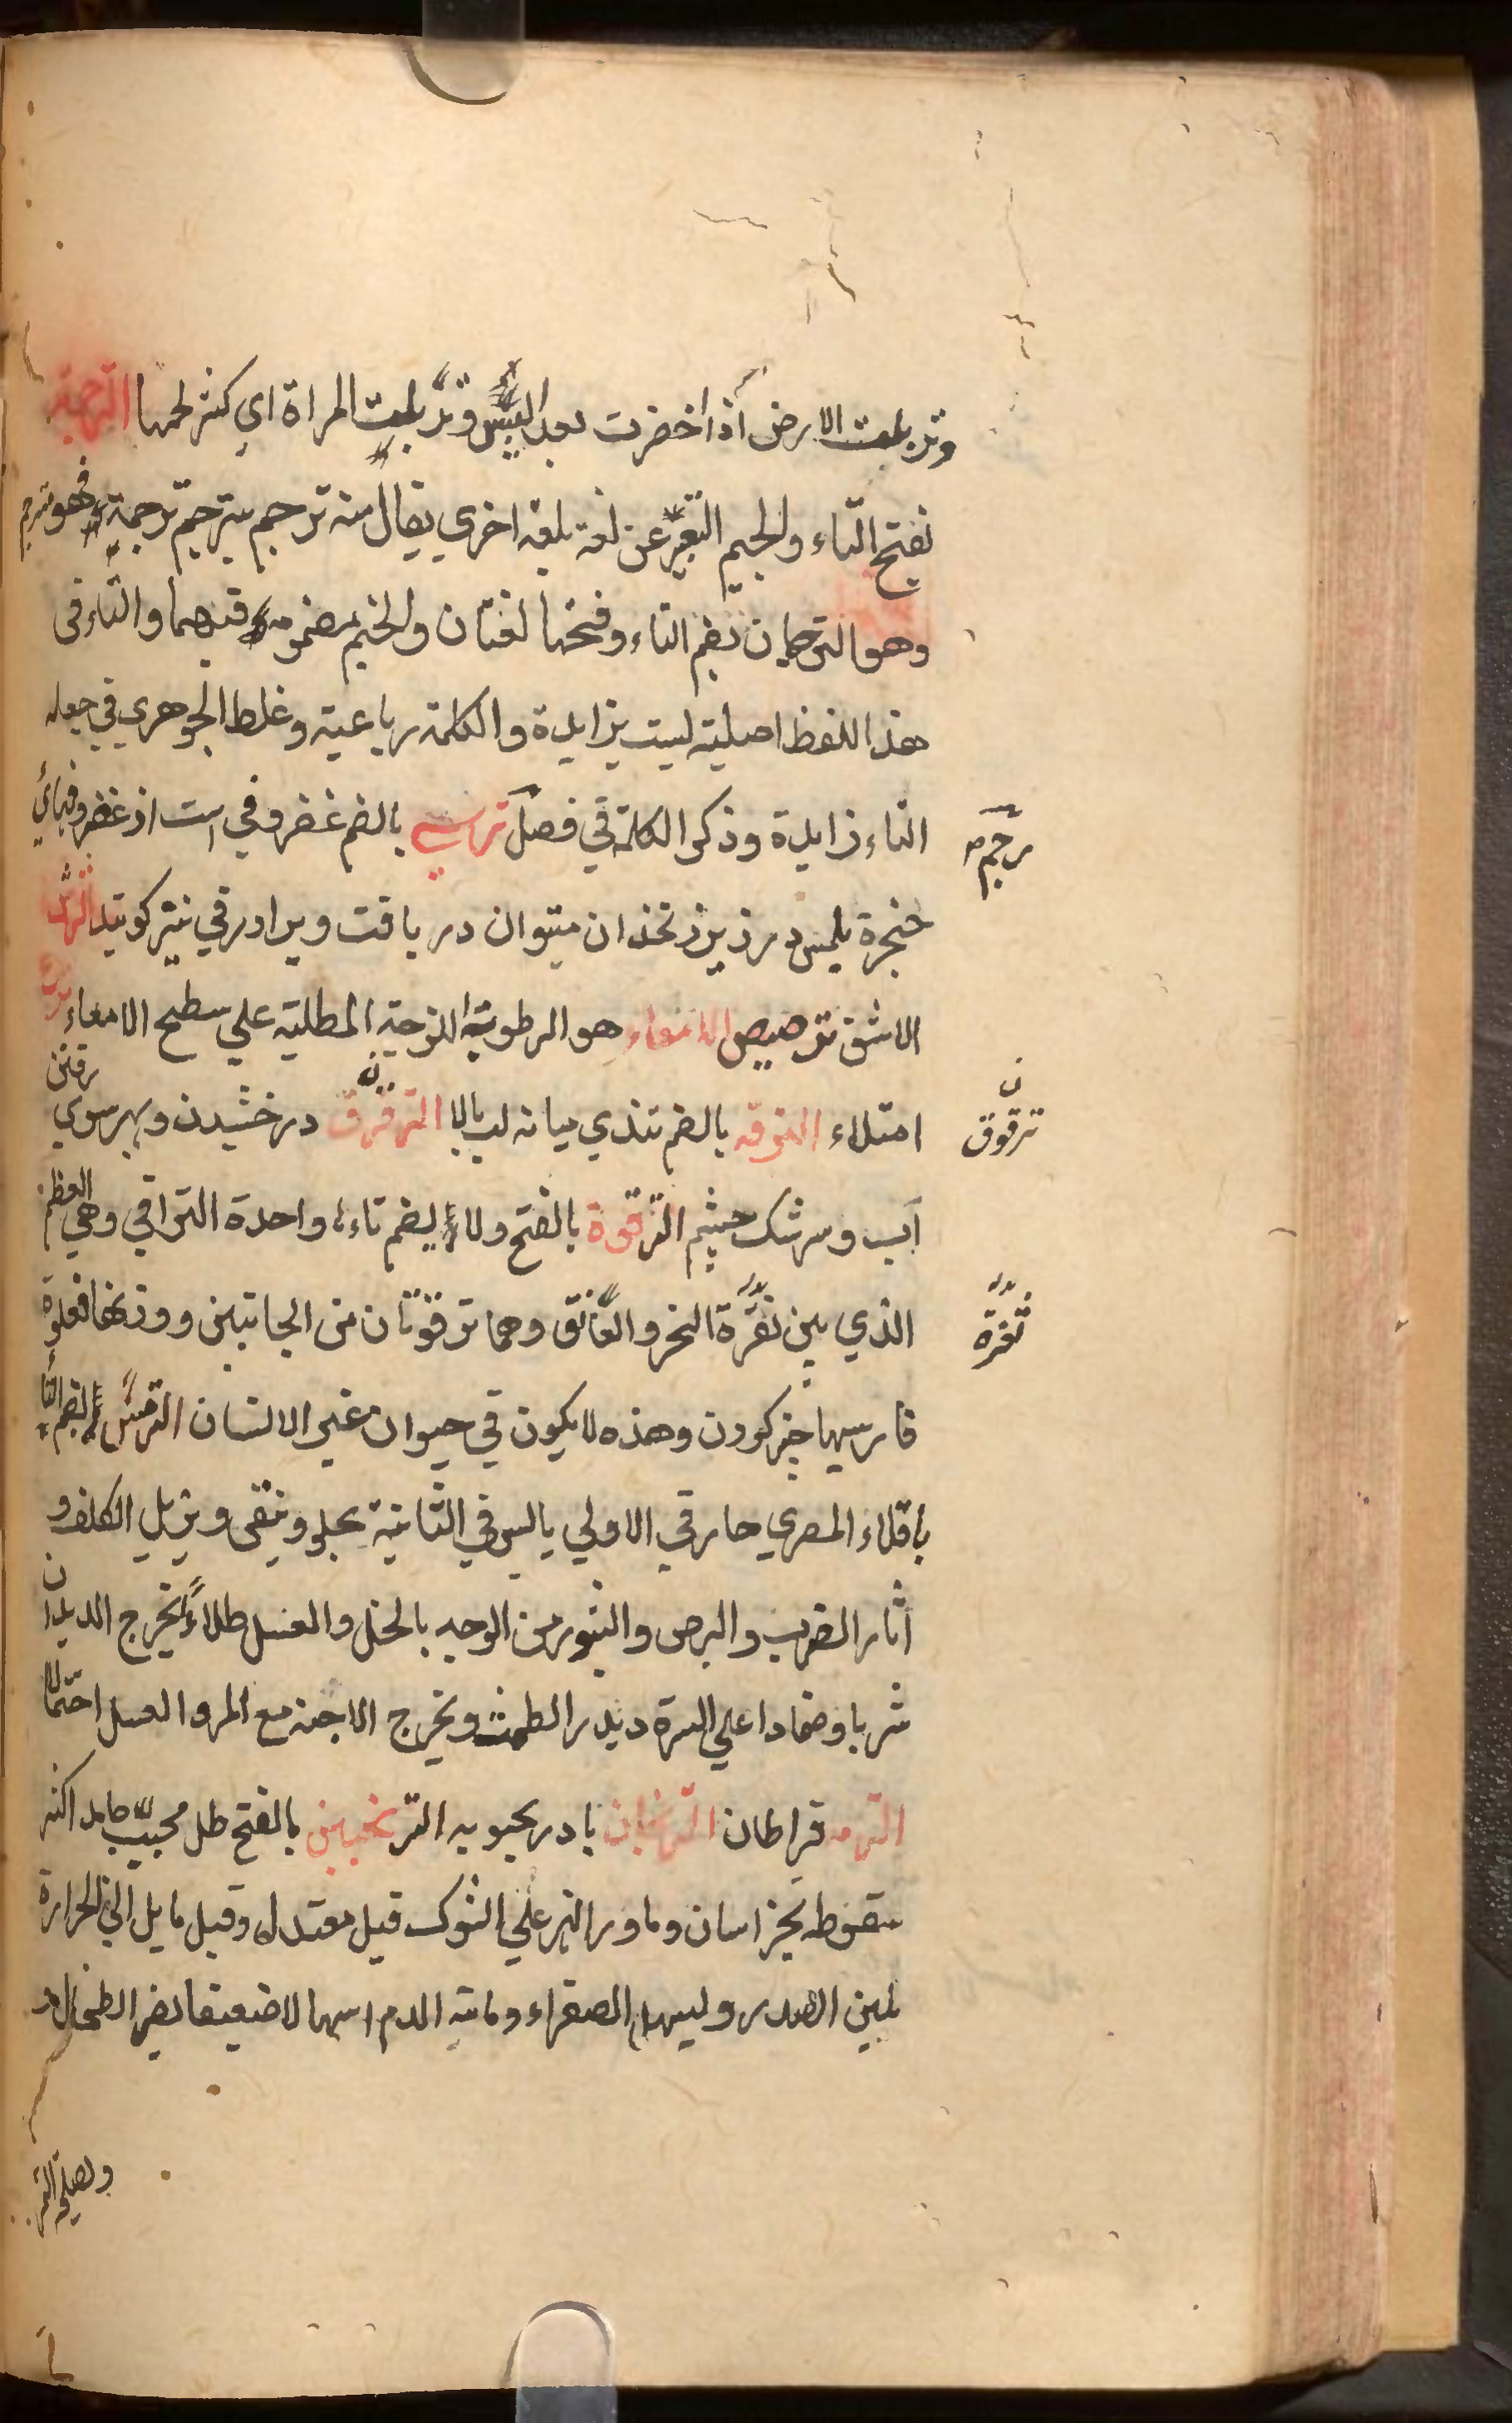 وتربلت الارض اذا اخضرت بعد اليبس وتربلت المراة اي كثر لحمها الترجمة
بفتح التاء والجيم التعبير عن لغة بلغة اخري يقال منه ترجم يترجم ترجمة فهو مترجم
وهو الترجمان بضم التاء وفتحها لغتان والجيم مضمومة فيهما والتاء في
هذا اللفظ اصلية ليست بزايدة والكلمة رباعية وغلط الجوهري في جعله
التاء زايدة وذكر الكلمة في فصل ترسي بالضم غضروفي است از غضروفهاي
رجم
حنجرة بلمس در زير زنخدان ميتوان دريافت ويرا درقي نيز كويند
الاشق ترصيص الامعاء هو الرطوبة اللزجة المطلية علي سطح الامعاء ترع
امتلاء الترفه بالضم تندي ميانه لب بالا الترقرق درخشيدن وبهر سوي رفتن
ترقوق
آب وسرشك چشم الترقوة بالفتح ولا يضم تاءها واحدة التراقي وهي العظم
الذي بين ثغرة النحر والعاتق وهما ترقوتان من الجانبين ووزنها فعلوة
ثغرة
فارسيها چنبر كردن وهذه لا يكون في حيوان غير الانسان الترمس بضم التاء
باقلاء المصري حار في الاولي يابس في الثانية يجلو وينقي ويزيل الكلف و
اثار الضرب والبرص والبثور من الوجه بالخل والعسل طلاءً يخرج الديدان
شربا وضمادا علي السرة ويدر الطمث ويخرج الاجنة مع المر والعسل احتمالا
الترمه قراطان الترنجان بادرنجبويه الترنجبين بالفتح طل مجيب جامد اكثر
سقوطه بخراسان وماورالنهر علي الشوك قيل معتدل وقيل مايل الي الحرارة
يلين الصدر ويسهل الصفراء ومائية الدم اسهالا ضعيفا يضر الطحال و
ويصلحه التمر